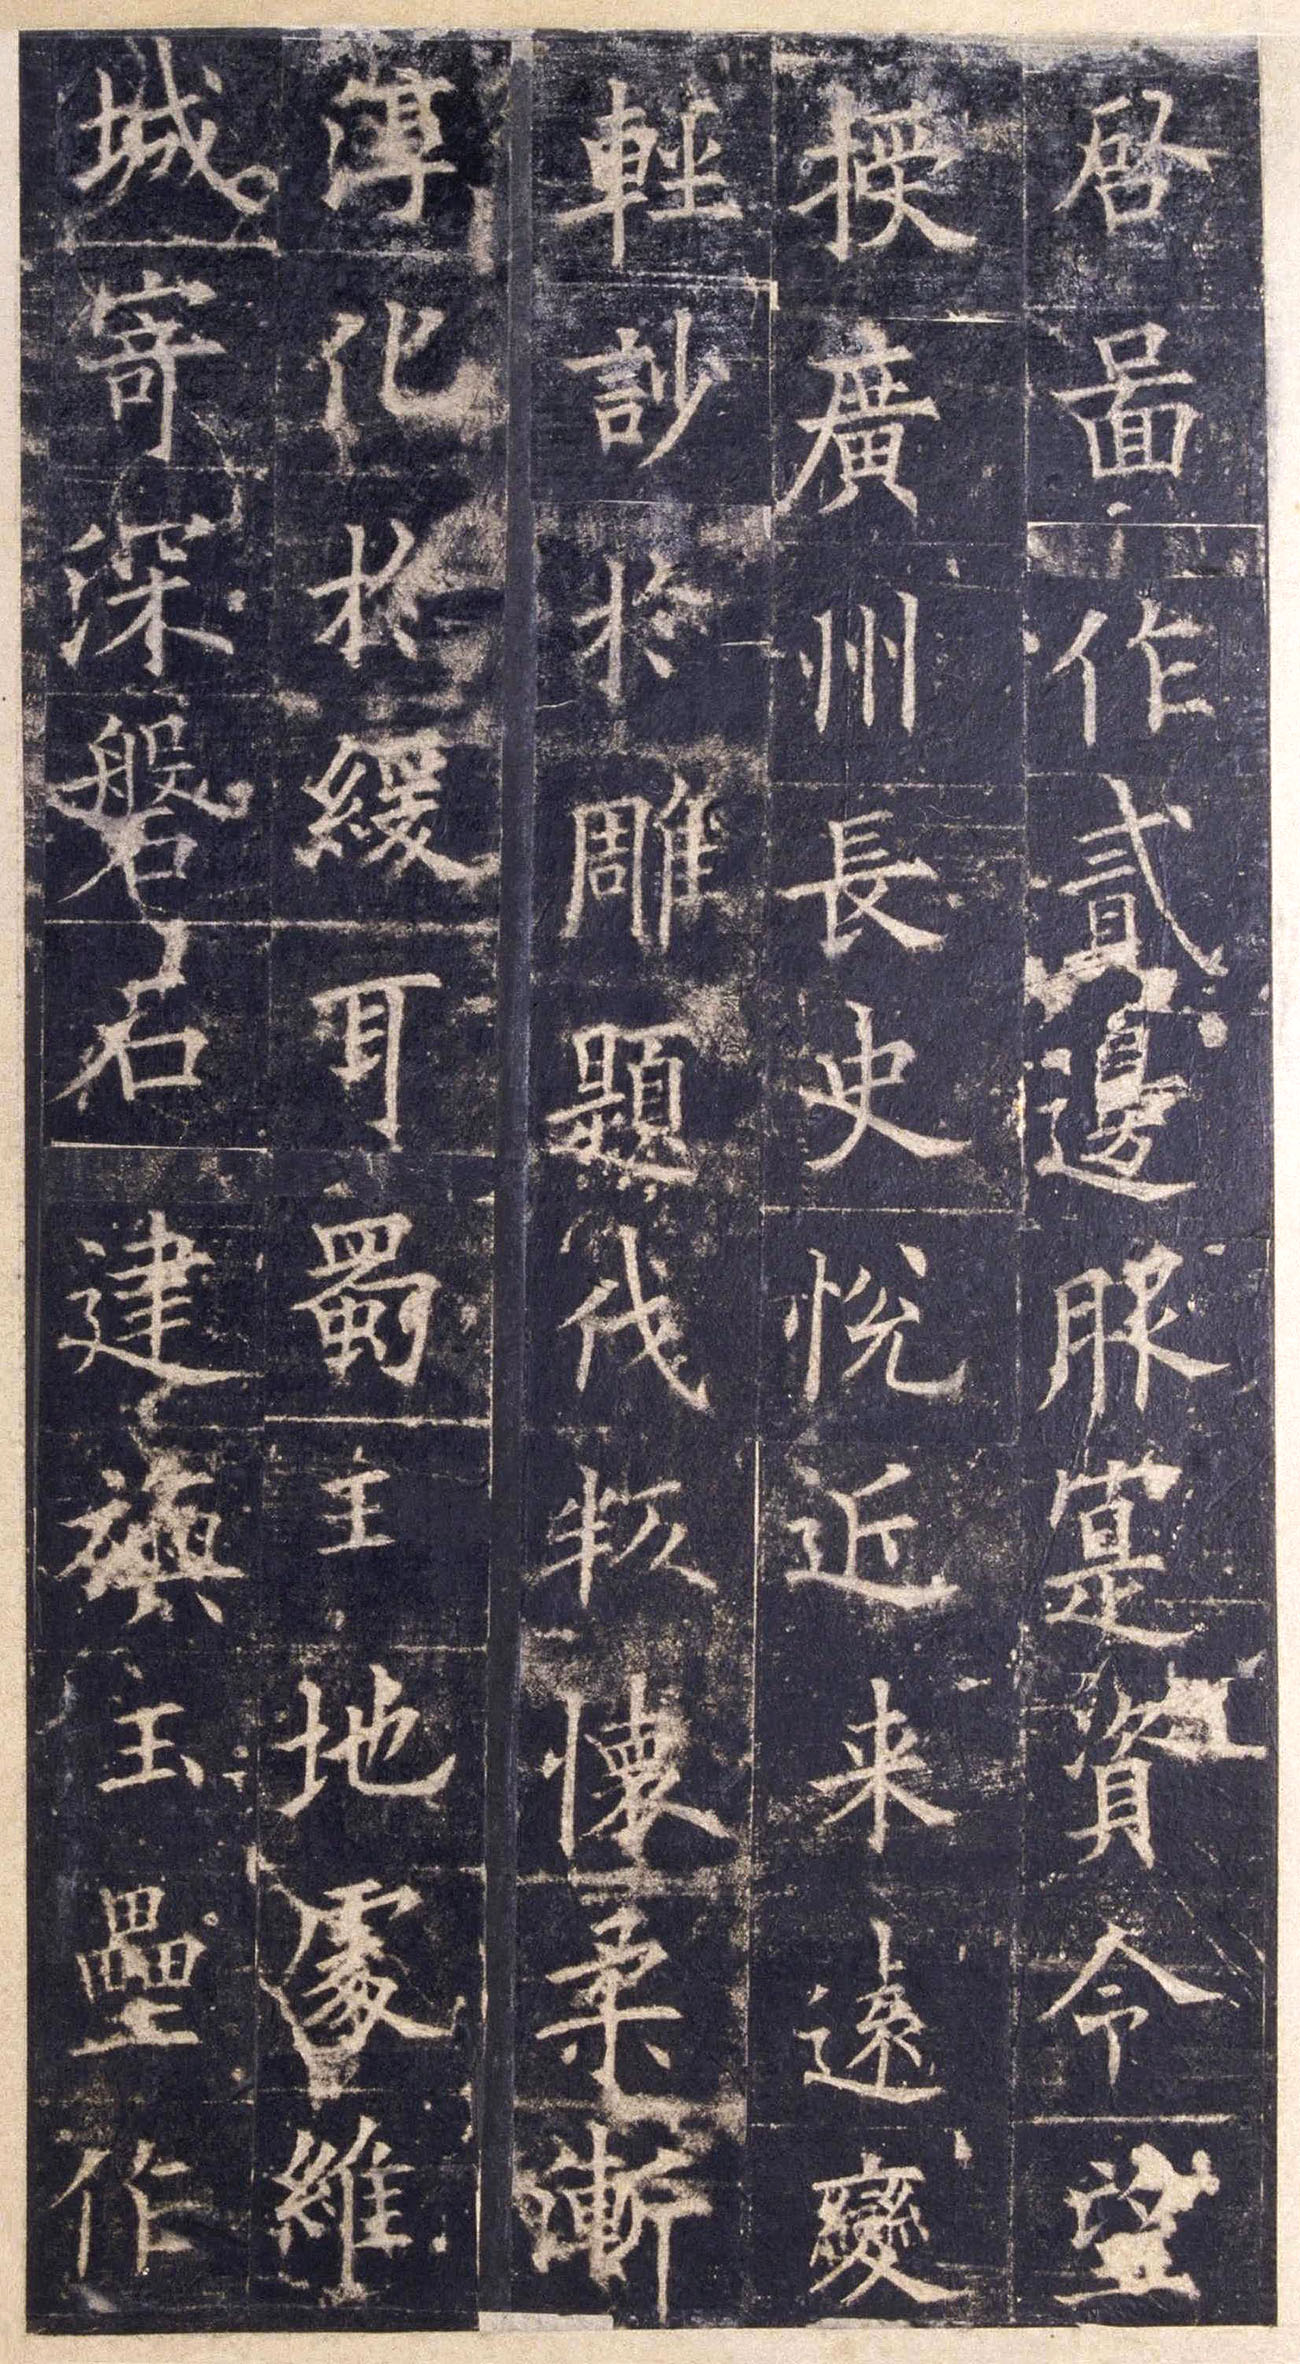 啓啚作貳邊服寔資令望
授廣州長史悅近来遠變
輕訬於雕題伐叛懷柔漸
薄化於緩耳蜀王地處維
城寄深磐石建旟玉壘作